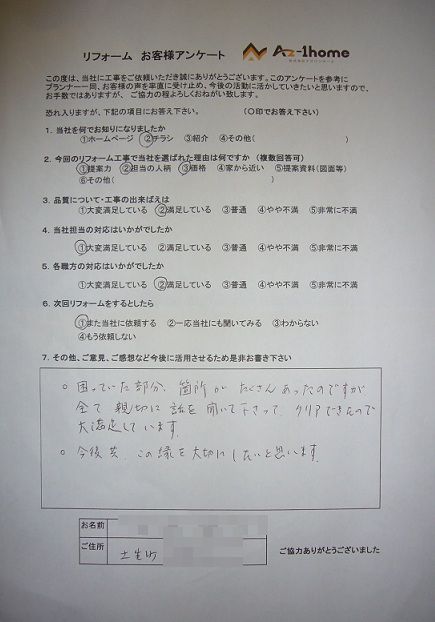 リフォーム お客様アンケート Az-1home
この度は、当社に工事をご依頼いただき誠にありがとうございます。このアンケートを参考に
プランナー一同、お客様の声を率直に受け止め、今後の活動に活かしていきたいと思いますので、
お手数ではありますが、ご協力の程よろしくおねがい致します。
恐れ入りますが、下記の項目にお答え下さい。 (○印でお答え下さい)
1. 当社を何でお知りになりましたか
①ホームページ ②チラシ ③紹介 ④その他( )
2. 今回のリフォーム工事で当社を選ばれた理由は何ですか (複数回答可)
①提案力 ②担当の人柄 ③価格 ④家から近い ⑤提案資料(図面等)
⑥その他( )
3. 品質について・工事の出来ばえは
①大変満足している ②満足している ③普通 ④やや不満 ⑤非常に不満
4. 当社担当の対応はいかがでしたか
①大変満足している ②満足している ③普通 ④やや不満 ⑤非常に不満
5. 各職方の対応はいかがでしたか
①大変満足している ②満足している ③普通 ④やや不満 ⑤非常に不満
6. 次回リフォームをするとしたら
①また当社に依頼する ②一応当社にも聞いてみる ③わからない
④もう依頼しない
7. その他、ご意見、ご感想など今後に活用させるため是非お書き下さい
○ 困っていた部分、箇所が たくさんあったのですが
全て 親切に 話を 聞いて 下さって、クリアできたので
大満足しています。
○ 今後共、この縁を大切にしたいと思います。
お名前
ご住所 土生町
ご協力ありがとうございました